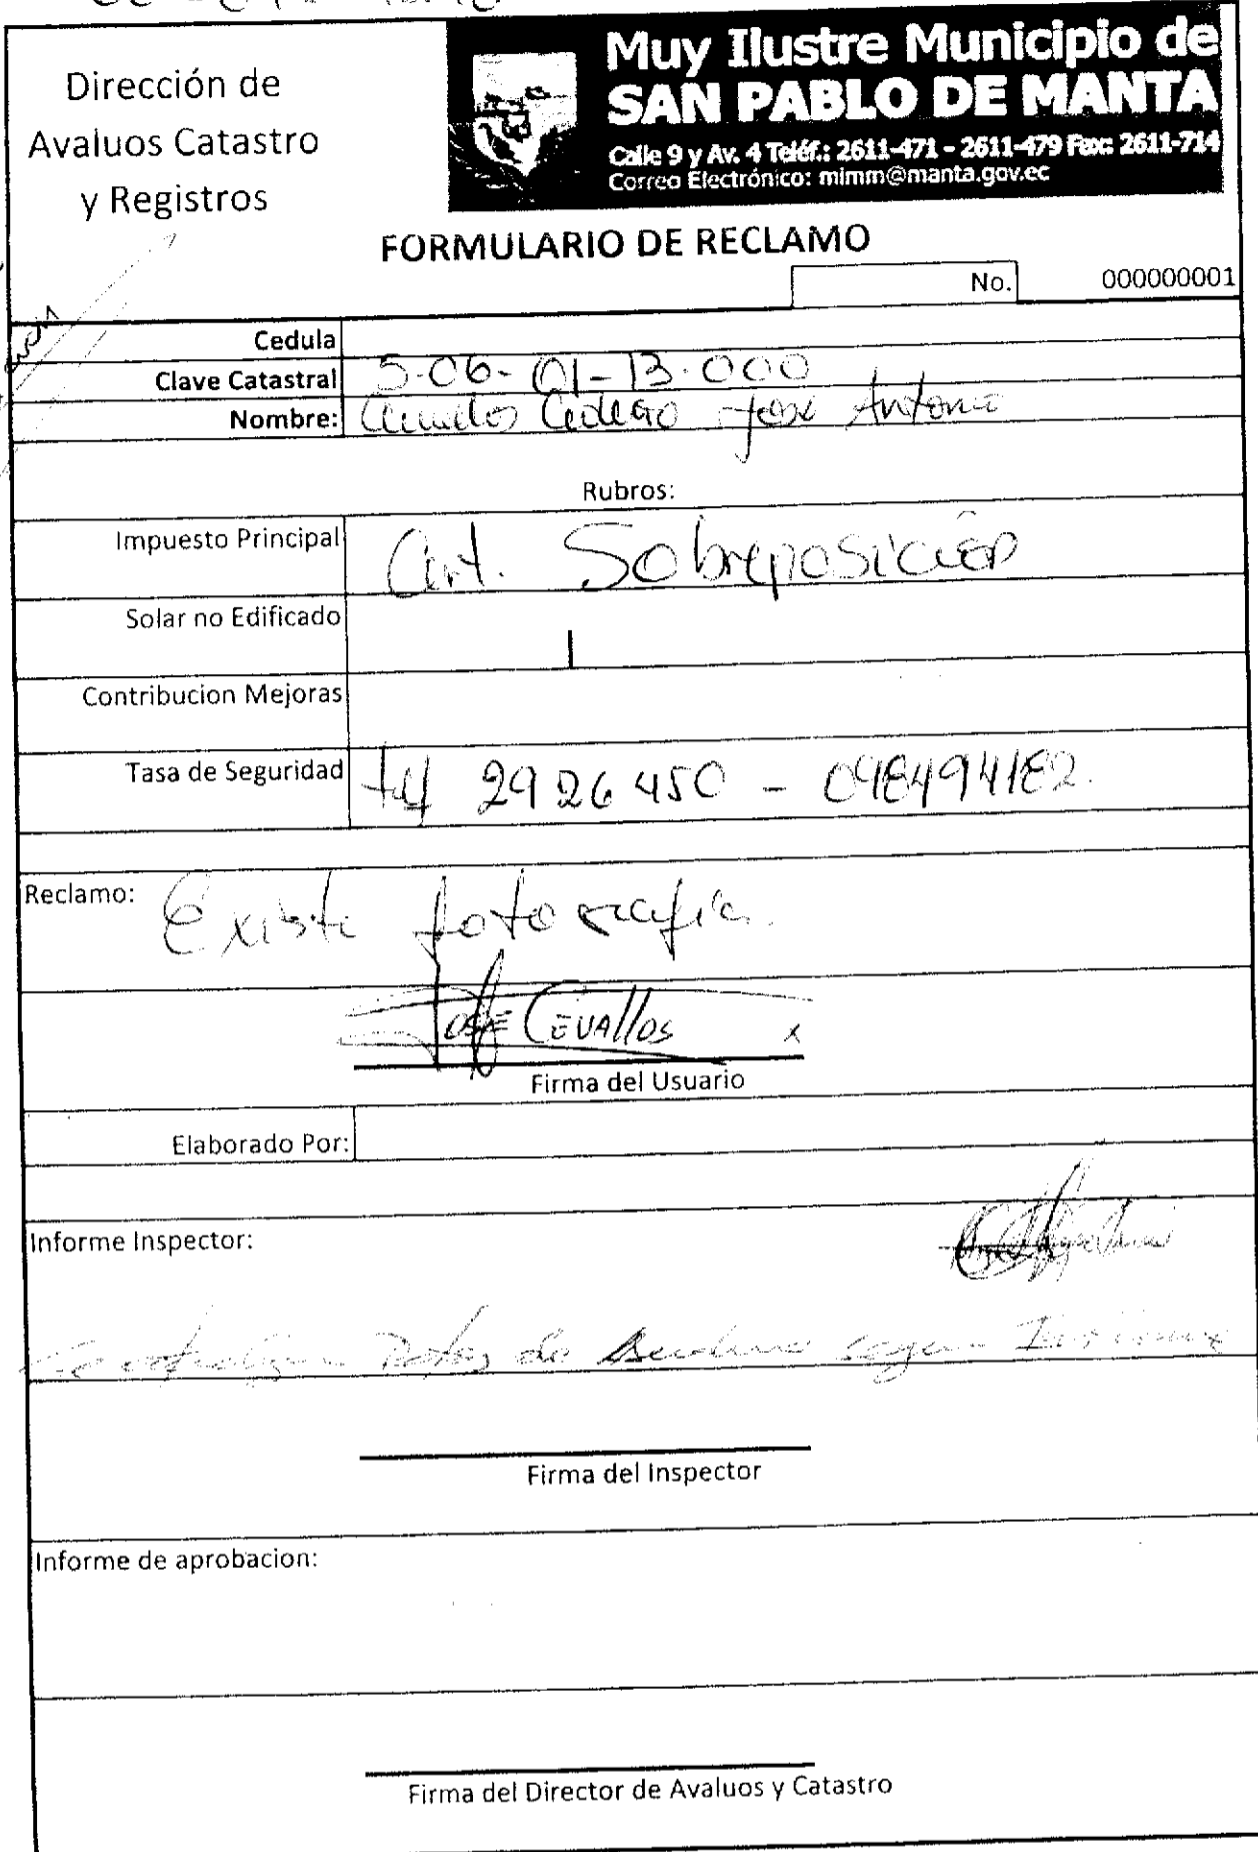 Dirección de
Avaluos Catastro
y Registros
Muy Ilustre Municipio de
SAN PABLO DE MANTA
Calle 9 y Av. 4 Teléf.: 2611-471 - 2611-479 Fax: 2611-714
Correo Electrónico: mimm@manta.gov.ec
FORMULARIO DE RECLAMO
No. 000000001
Cedula
Clave Catastral 5-06-01-13-000
Nombre: Cedeño José Antonio
Rubros:
Impuesto Principal Cert. Sobreposición
Solar no Edificado
Contribucion Mejoras
Tasa de Seguridad telf 2926450 - 098494182.
Reclamo: Existe fotografia.
José Cevallos x
Firma del Usuario
Elaborado Por:
Informe Inspector:
Datos de según
Firma del Inspector
Informe de aprobacion:
Firma del Director de Avaluos y Catastro